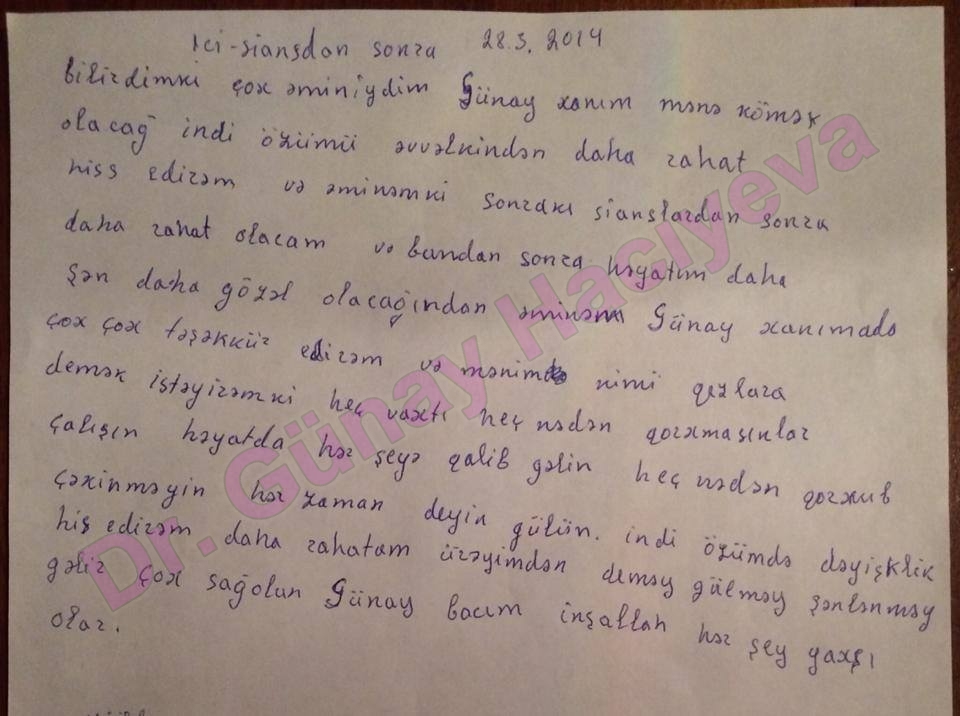 ıci-siansdan sonra 28.3.2014
bilirdimki çox əminiydim Günay xanım mənə kömək
olacağ indi özümü əvvəlkindən daha rahat
hiss edirəm və əminəmki sonrakı sianslardan sonra
daha rahat olacam və bundan sonra həyatım daha
şən daha gözəl olacağından əminəm Günay xanımada
çox çox təşəkkür edirəm və mənim kimi qızlara
demək iştəyirəmki heç vaxtı heç nədən qorxmasınlar
çalışın həyatda hər şeyə qalib gəlin heç nədən qorxub
çəkinməyin hər zaman deyin gülün. indi özümdə dəyişklik
hiş edirəm daha rahatam ürəyimdən deməy gülməy şənlənməy
gəlir çox sağolun Günay bacım inşallah hər şey yaxşı
olar.
Dr. Günay Hacıyeva